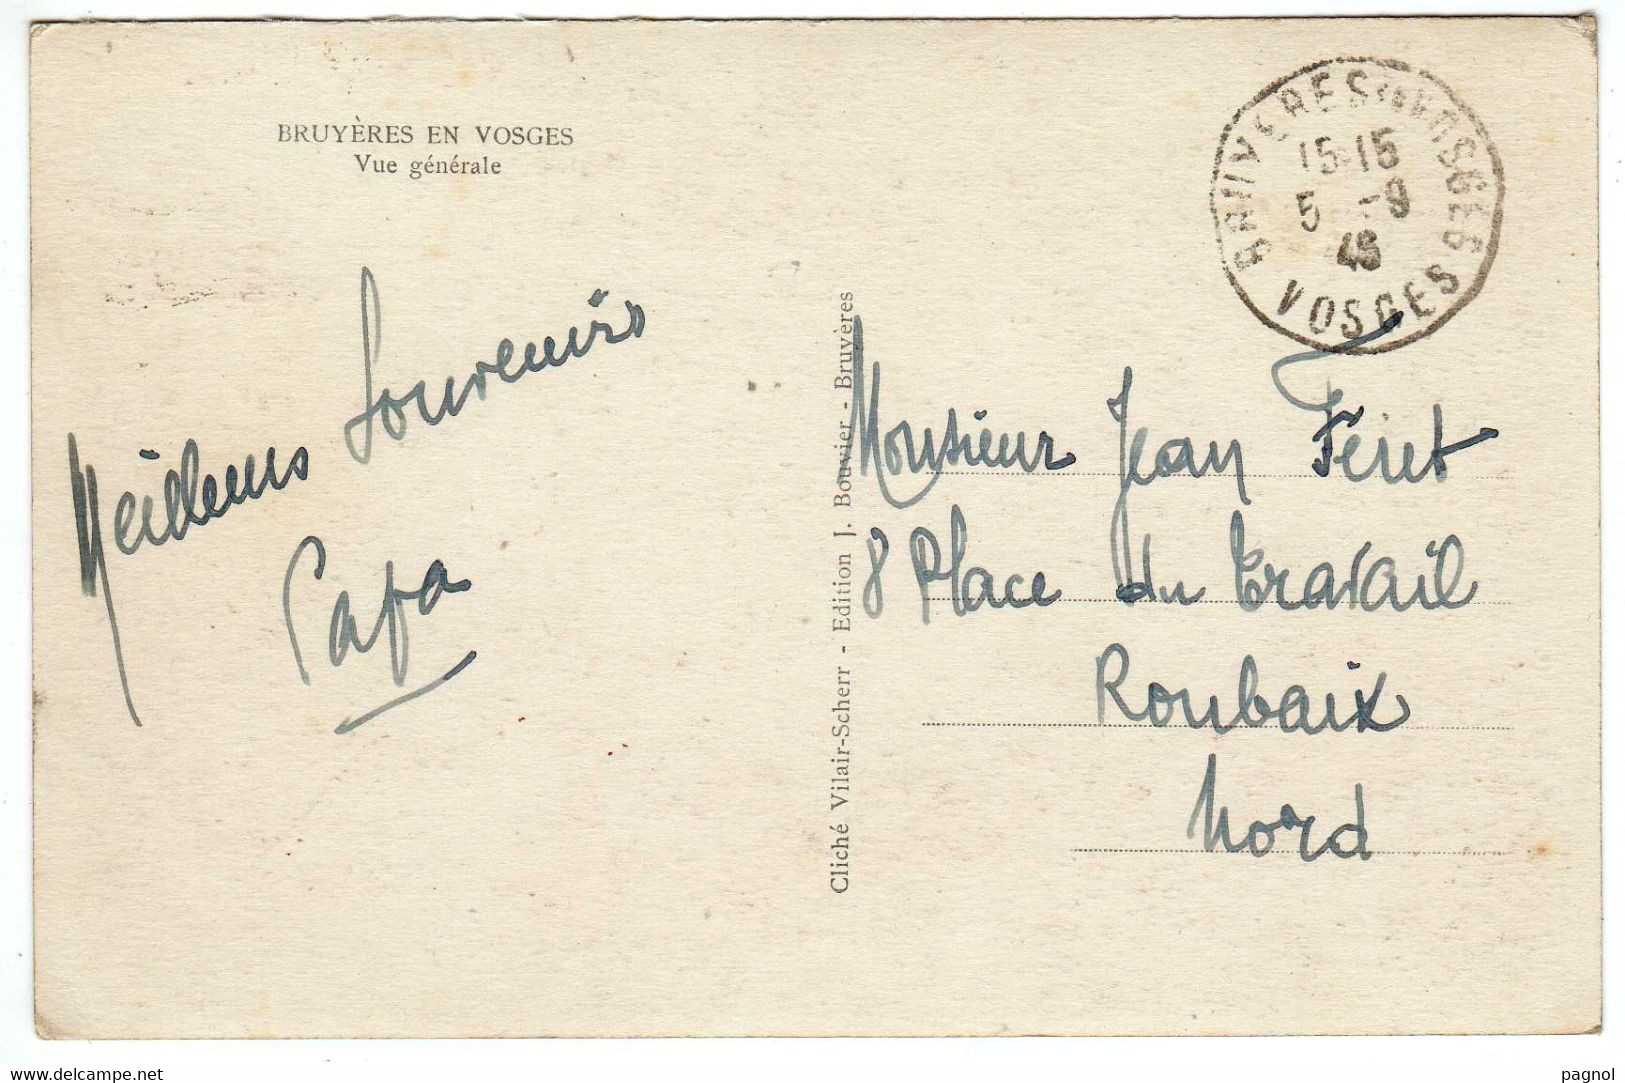 BRUYÈRES EN VOSGES
Vue générale
BRUYERES EN VOSGES
15·15
5 -9
46
VOSGES
Meilleurs Souvenirs
Papa
Cliché Vilair-Scherr - Edition J. Bouvier - Bruyères
Monsieur Jean Feret
8 Place du Travail
Roubaix
Nord
www.delcampe.net
pagnol